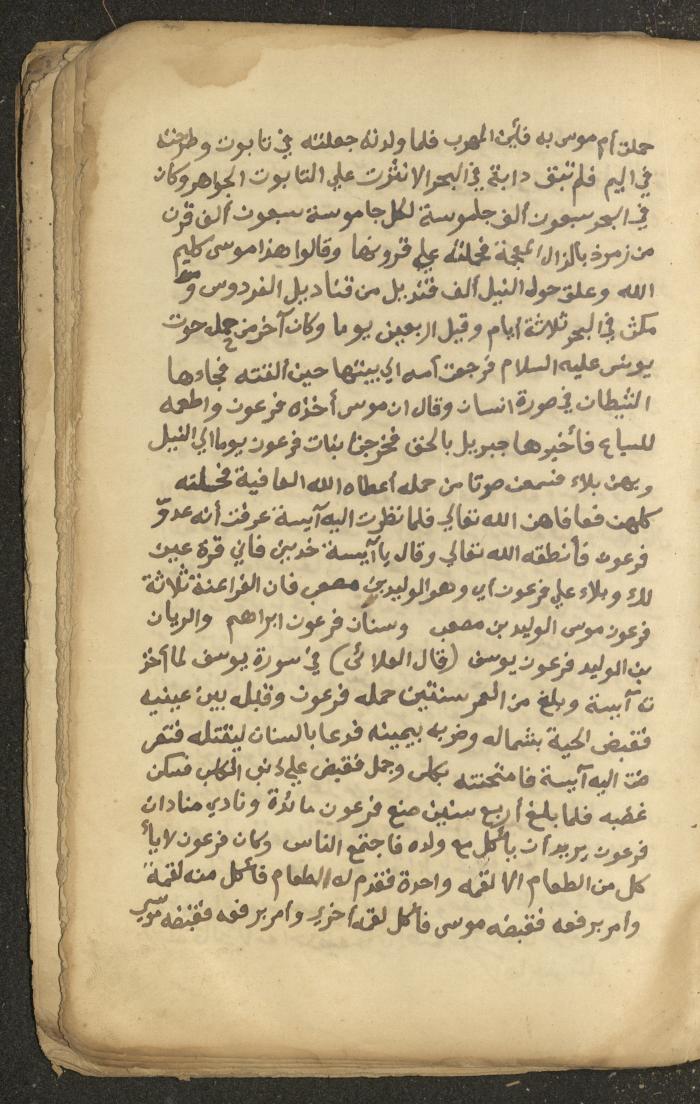 حملت أم موسى به فأين المهرب فلما ولدته جعلته في تابوت وطرحته
في اليم فلم تبق دابة في البحر الا نثرت علي التابوت الجواهر وكان
في البحر سبعون ألف جاموسة لكل جاموسة سبعون ألف قرن
من زمرذ بالزال المعجمة فحملته علي قرونها وقالوا هذا موسى كليم
الله وعلق حوله النيل ألف قنديل من قناديل الفردوس و
مكث في البحر ثلاثة أيام وقيل اربعين يوما وكان آخر من حمله حوت
يونس عليه السلام فرجعت أمه الي بيتها حين ألقته فجاءها
الشيطان في صورة انسان وقال ان موسى أخذه فرعون واطعمه
للسباع فأخبرها جبريل بالحق فخرجن بنات فرعون يوما الي النيل
وبهن بلاء فسمعن صوتا من حمله أعطاه الله العافية فحملته
كلهن فعافاهن الله تعالي فلما نظرت اليه آيسة عرفت أنه عدوّ
فرعون فأنطقه الله تعالي وقال يا آيسة خديني فاني قرة عين
لك وبلاء علي فرعون أي وهو الوليد بن مصعب فان الفراعنة ثلاثة
فرعون موسى الوليد بن مصعب وسنان فرعون ابراهم والريان
بن الوليد فرعون يوسف (قال العلائي) في سورة يوسف لما أخذ
ته آيسة وبلغ من العمر سنتين حمله فرعون وقبله بين عينيه
فقبض الحية بشماله وضربه بيمينه فدعا بالسنان ليقتله فتعر
ضت اليه آيسة فامتحنته بكلب وجمل فقبض علي ذنب الكلب فسكن
غضبه فلما بلغ أربع سنين صنع فرعون مائدة ونادي منادان
فرعون يريد أن يأكل مع ولده فاجتمع الناس وكان فرعون لا يأ
كل من الطعام الا لقمه واحدة فقدم له الطعام فأكل منه لقمة
وأمر برفعه فقبضه موسى فأكل لقمه أخري وأمر برفعه فقبضه موسي